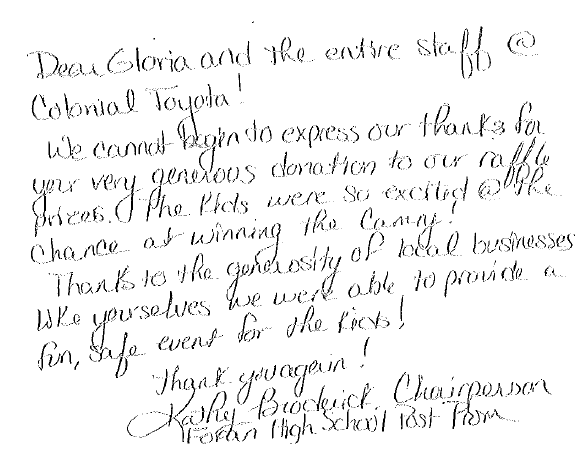 Dear Gloria and the entire staff @
Colonial Toyota!
We cannot begin to express our thanks for
your very generous donation to our raffle
prizes. The kids were so excited @ the
chance at winning the Camry!
Thanks to the generosity of local businesses
like yourselves we were able to provide a
fun, safe event for the kids!
Thank you again!
Kathy Broderick, Chairperson
Foran High School Post Prom